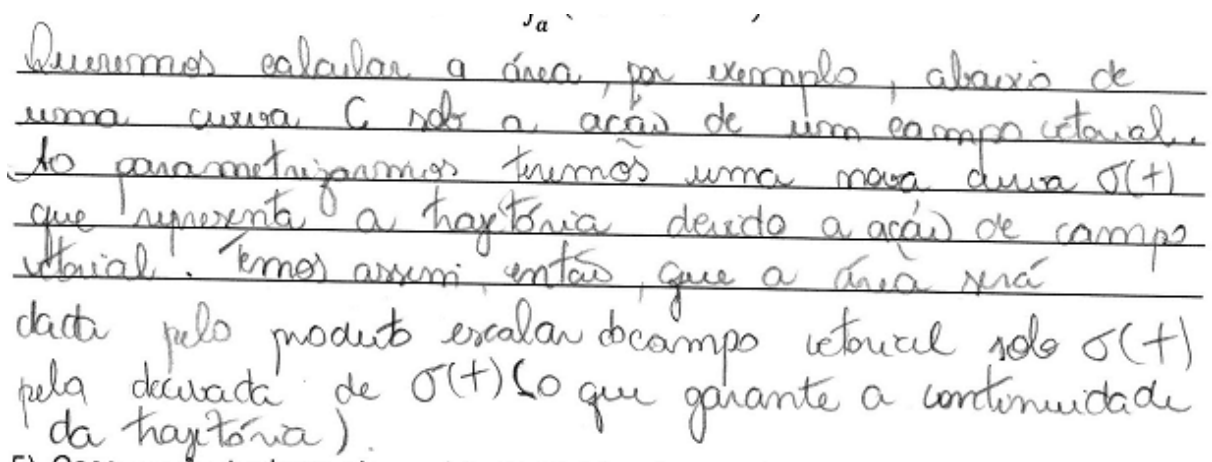 Queremos calcular a área, por exemplo, abaixo de
uma curva C sob a ação de um campo vetorial.
Ao parametrizarmos teremos uma nova curva σ(t)
que representa a trajetória devido a ação de campo
vetorial. Temos assim, então, que a área será
dada pelo produto escalar do campo vetorial sob σ(t)
pela derivada de σ(t) (o que garante a continuidade
da trajetória).